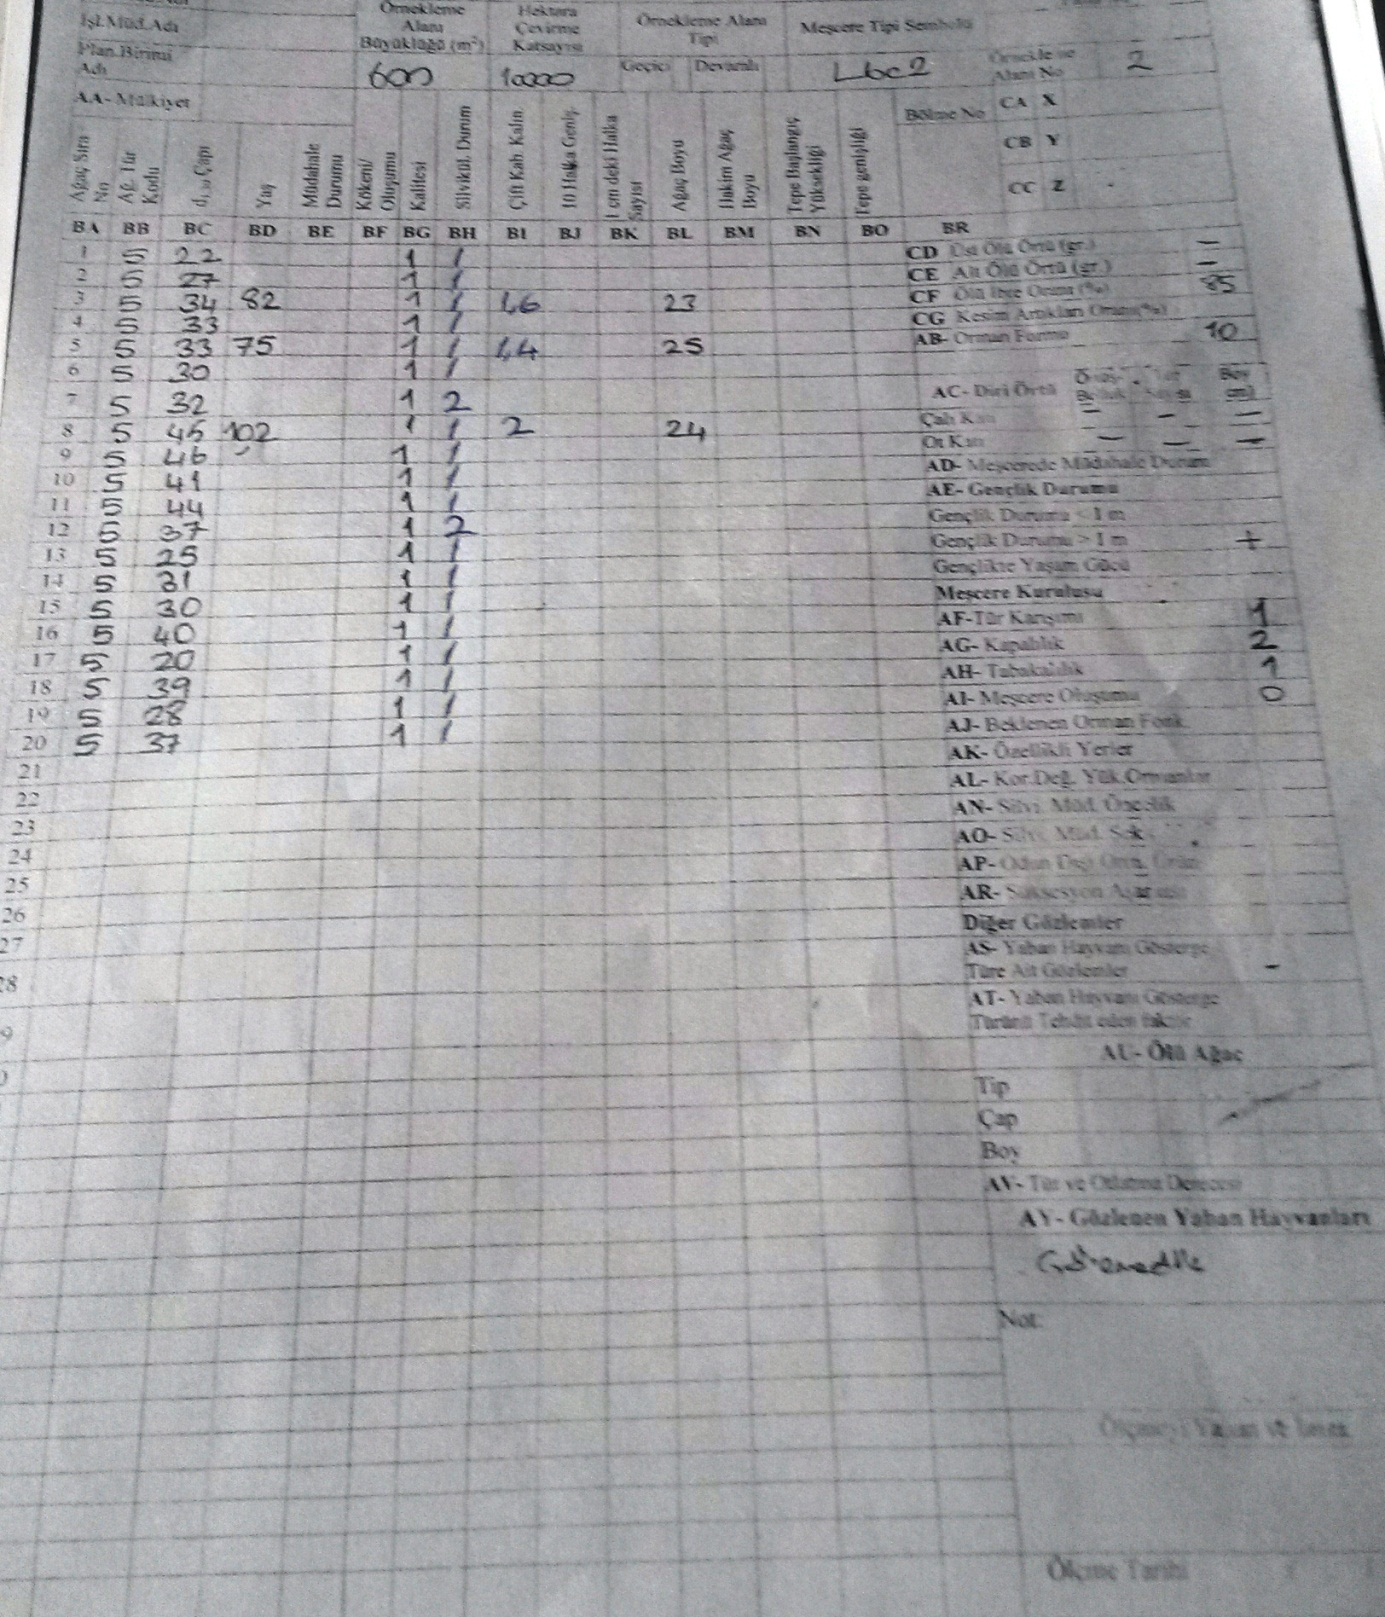 İşl.Müd.Adı
Örnekleme Alanı Büyüklüğü (m²)
Hektara Çevirme Katsayısı
Örnekleme Alanı Tipi
Meşcere Tipi Sembolü
Plan.Birimi Adı
600
10000
Geçici
Devamlı
Lbc2
Alanı No
2
AA- Mülkiyet
Bölme No
CA X
CB Y
CC Z
Ağaç Sıra No
Ağ. Tür Kodu
d1,30 Çapı
Yaş
Müdahale Durumu
Kökeni/ Oluşumu
Kalitesi
Silvikül. Durum
Çift Kab. Kalın.
10 Halka Geniş.
1 cm deki Halka Sayısı
Ağaç Boyu
Hakim Ağaç Boyu
Tepe Başlangıç Yüksekliği
Tepe genişliği
BA BB BC BD BE BF BG BH BI BJ BK BL BM BN BO BR
1 5 22 1 1
2 5 27 1 1
3 5 34 82 1 1 1,6 23
4 5 33 1 1
5 5 33 75 1 1 1,4 25
6 5 30 1 1
7 5 32 1 2
8 5 45 102 1 1 2 24
9 5 46 1 1
10 5 41 1 1
11 5 44 1 1
12 5 37 1 2
13 5 25 1 1
14 5 31 1 1
15 5 30 1 1
16 5 40 1 1
17 5 20 1 1
18 5 39 1 1
19 5 28 1 1
20 5 37 1 1
21
22
23
24
25
26
27
28
9
CD Üst Ölü Örtü (gr.) —
CE Alt Ölü Örtü (gr.) —
CF Ölü İbre Oranı (%) 85
CG Kesim Artıkları Oranı(%)
AB- Orman Formu 10
AC- Diri Örtü
Boy
Çalı Katı — — —
Ot Katı — — —
AD- Meşcerede Müdahale Durum
AE- Gençlik Durumu
Gençlik Durumu < 1 m
Gençlik Durumu > 1 m +
Gençlikte Yaşam Gücü
Meşcere Kuruluşu
AF-Tür Karışımı 1
AG- Kapalılık 2
AH- Tabakalılık 1
AI- Meşcere Oluşumu 0
AJ- Beklenen Orman Fonk.
AK- Özellikli Yerler
AL- Kor.Değ. Yük.Ormanlar
AN- Silvi. Müd. Öncelik
AO- Silvi. Müd. Şek.
AP- Odun Dışı Orm. Ürün
AR- Süksesyon Aşaması
Diğer Gözlemler
AS- Yaban Hayvanı Gösterge
Türe Ait Gözlemler —
AT- Yaban Hayvanı Gösterge
Türünü Tehdit eden faktör
AU- Ölü Ağaç
Tip
Çap
Boy
AV- Tür ve Otlatma Derecesi
AY- Gözlenen Yaban Hayvanları
Not:
Ölçmeyi Yapan ve İmza
Ölçme Tarihi